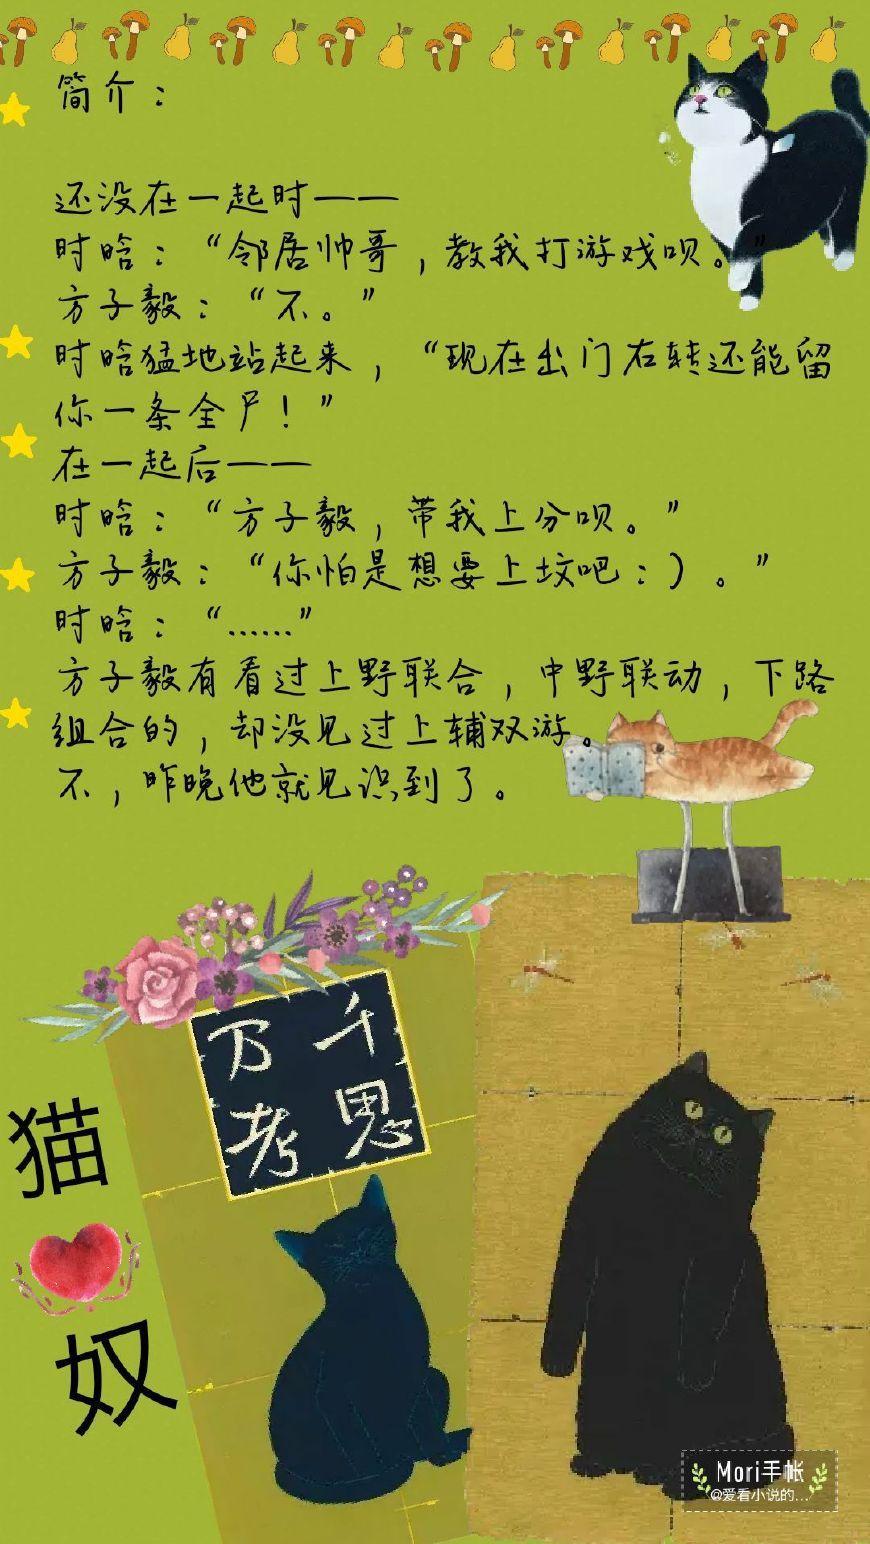 简介：
还没在一起时——
时晗：“邻居帅哥，教我打游戏呗。”
方子毅：“不。”
时晗猛地站起来，“现在出门右转还能留
你一条全尸！”
在一起后——
时晗：“方子毅，带我上分呗。”
方子毅：“你怕是想要上坟吧：）。”
时晗：“……”
方子毅有看过上野联合，中野联动，下路
组合的，却没见过上辅双游。
不，昨晚他就见识到了。
千思
万考
猫
奴
Mori手帐
@爱看小说的...